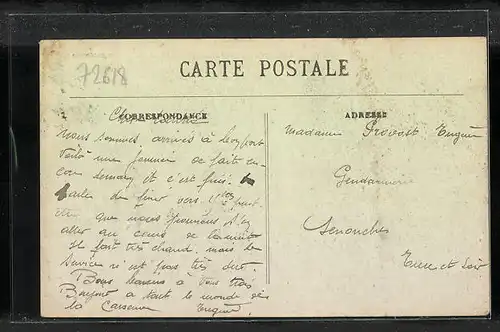 72618
CARTE POSTALE
CORRESPONDANCE
ADRESSE
Nous sommes arrivés à bon port
Voilà une journée de faite en-
core demain et c'est fini.
que nous
aller au cours de
Il fait très chaud, mais le
service n'est pas très dur.
Bons baisers à vous tres
Bonjour a tout le monde de
la Caserne Eugène
Madame Provost Eugène
Gendarmerie
Senonches
Eure et Loir